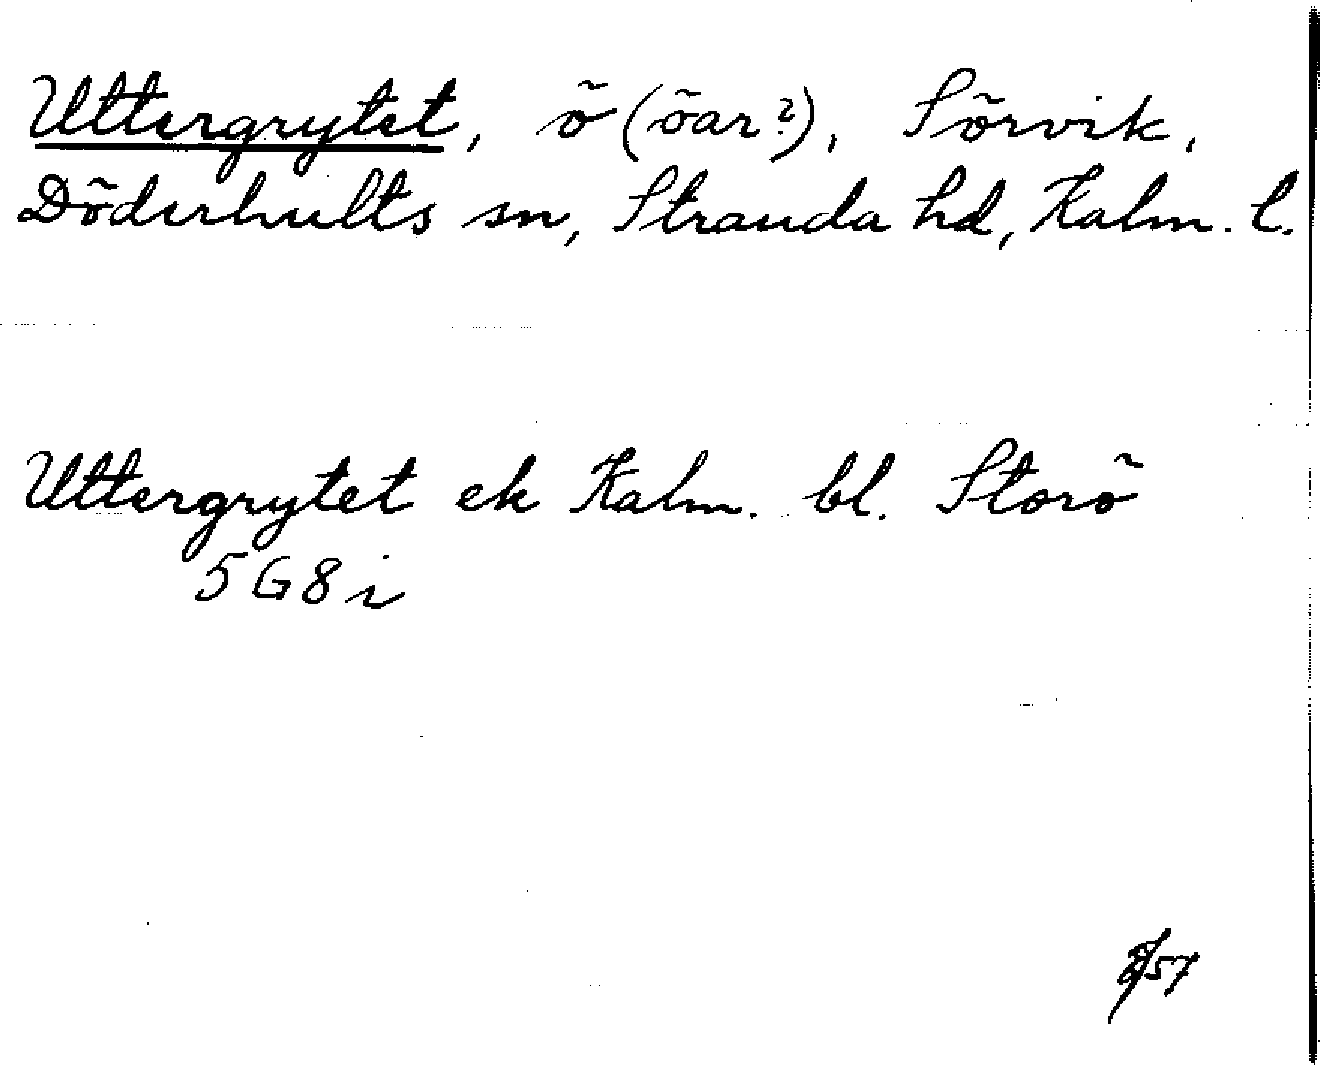 Uttergrytet, ö (öar?), Sörvik,
Döderhults sn, Stranda hd, Kalm. l.
Uttergrytet ek Kalm. bl. Storö
5G8i